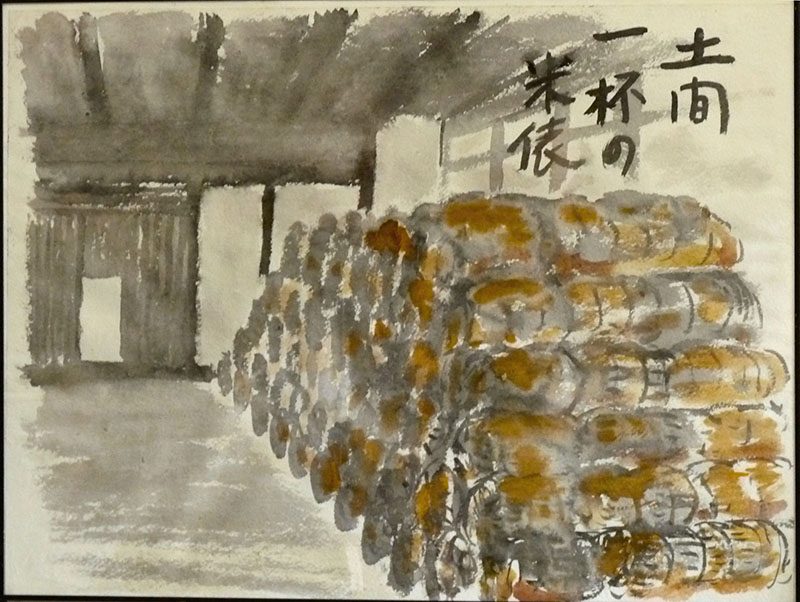 土間
一杯の
米俵